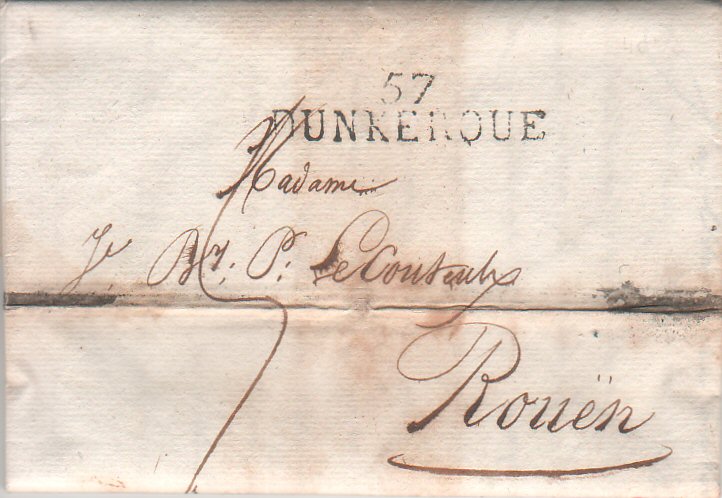 57
DUNKERQUE
Madame
Je By. P. Le Couteulx
Rouën